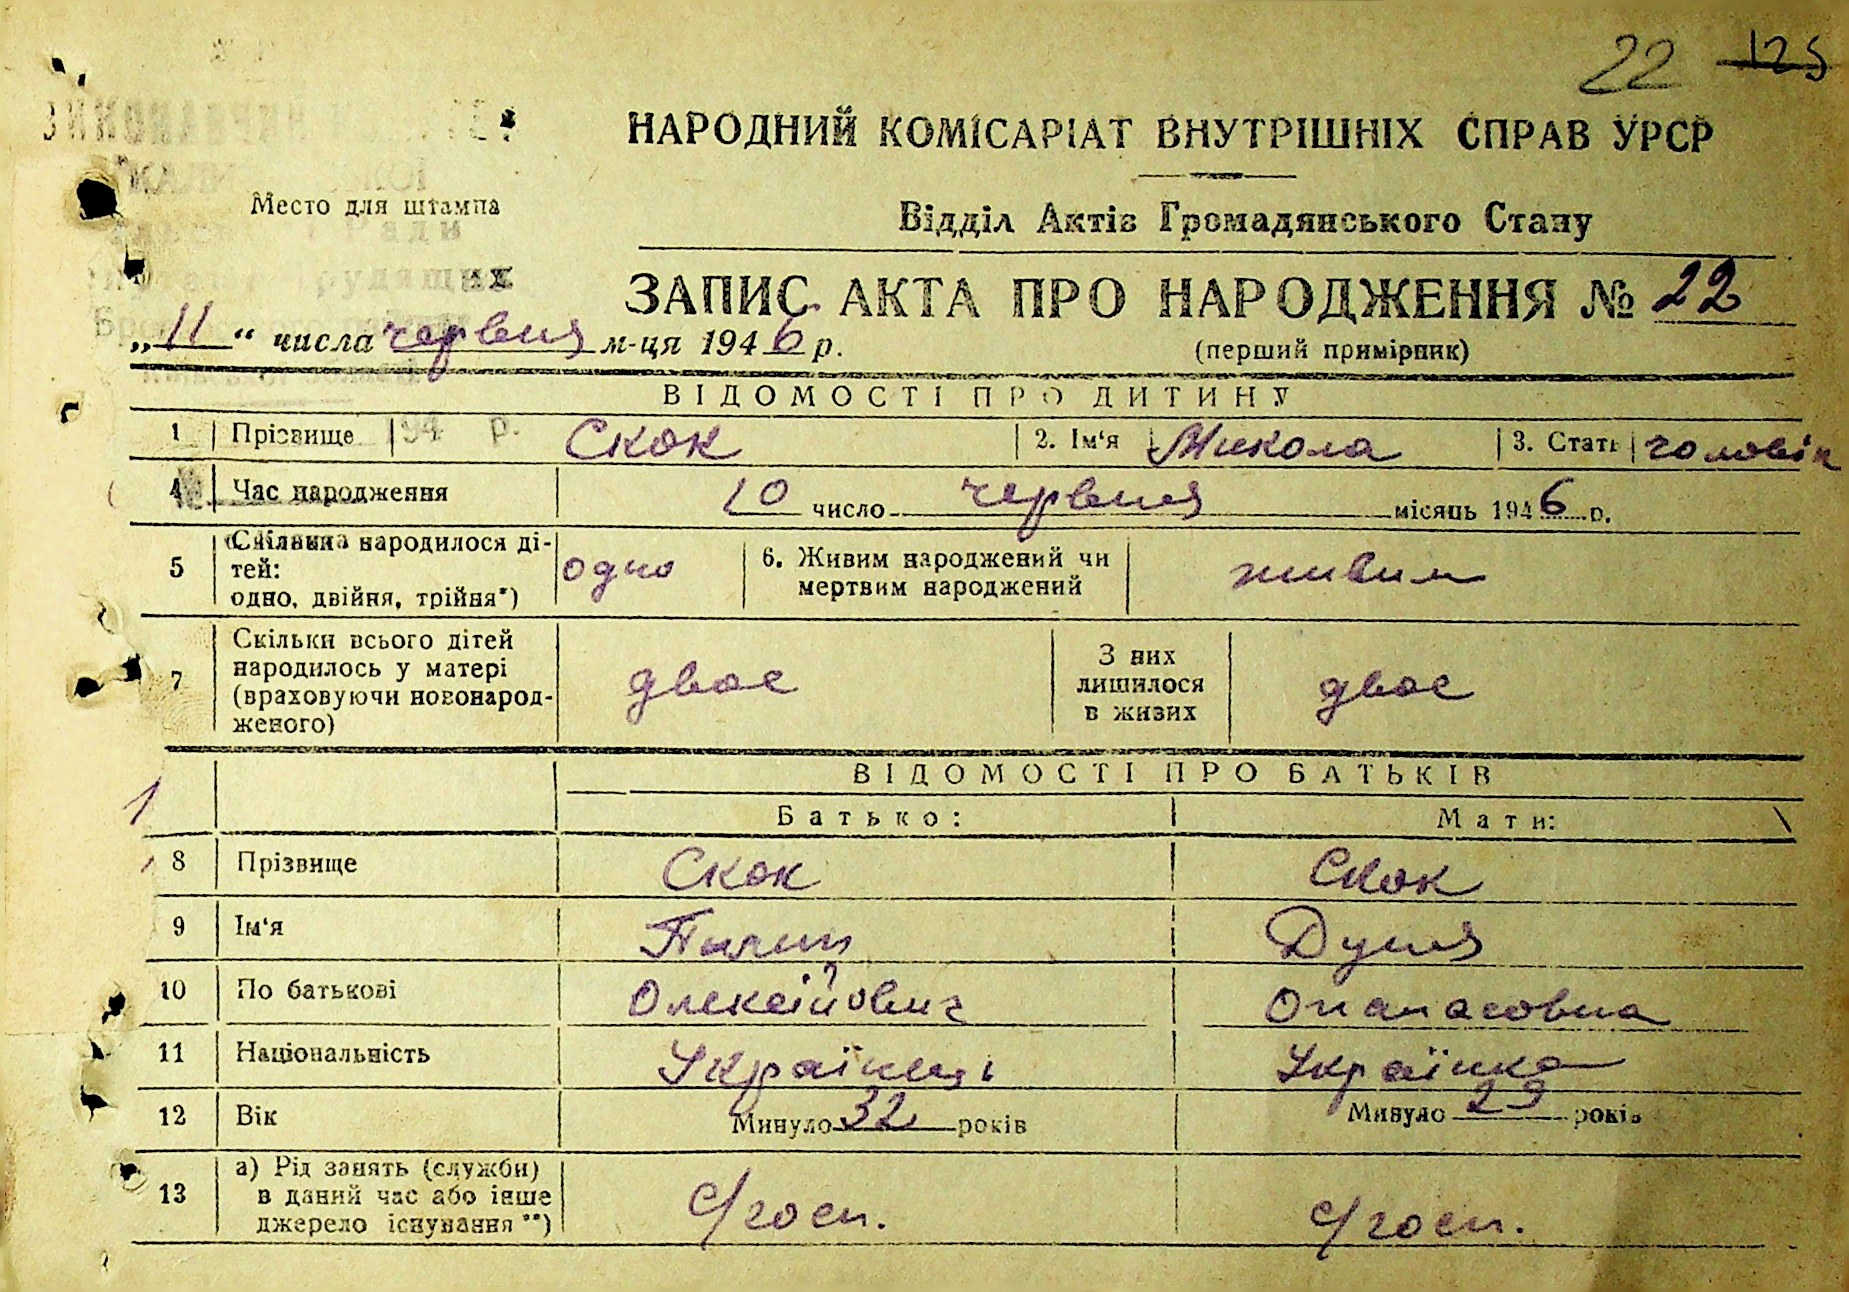 22 125
НАРОДНИЙ КОМІСАРІАТ ВНУТРІШНІХ СПРАВ УРСР
Место для штампа
Відділ Актів Громадянського Стану
ЗАПИС АКТА ПРО НАРОДЖЕННЯ № 22
„11“ числа червня м-ця 1946 р.
(перший примірник)
ВІДОМОСТІ ПРО ДИТИНУ
1 Прізвище 194 р. Скок 2. Ім‘я Микола 3. Стать чоловік
4 Час народження 10 число червня місяць 1946 р.
5 Скільки народилося ді-
тей:
одно, двійня, трійня*) одно
6. Живим народжений чи
мертвим народжений живим
7 Скільки всього дітей
народилось у матері
(враховуючи новонарод-
женого) двоє
З них
лишилося
в живих двоє
ВІДОМОСТІ ПРО БАТЬКІВ
Батько: Мати:
8 Прізвище Скок Скок
9 Ім‘я Дуня
10 По батькові Олексійович Опанасовна
11 Національність Українець Українка
12 Вік Минуло 32 років Минуло 29 років
13 а) Рід занять (служби)
в даний час або інше
джерело існування **) с/госп. с/госп.